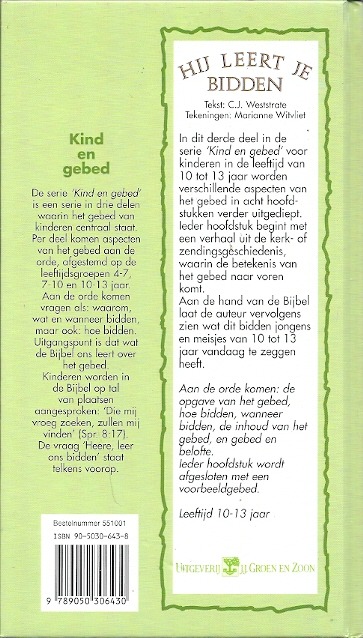 Kind
en
gebed
De serie 'Kind en gebed'
is een serie in drie delen
waarin het gebed van
kinderen centraal staat.
Per deel komen aspecten
van het gebed aan de
orde, afgestemd op de
leeftijdsgroepen 4-7,
7-10 en 10-13 jaar.
Aan de orde komen
vragen als: waarom,
wat en wanneer bidden,
maar ook: hoe bidden.
Uitgangspunt is dat wat
de Bijbel ons leert over
het gebed.
Kinderen worden in
de Bijbel op tal
van plaatsen
aangesproken: 'Die mij
vroeg zoeken, zullen mij
vinden' (Spr. 8:17).
De vraag 'Heere, leer
ons bidden' staat
telkens voorop.
Bestelnummer 551001
ISBN 90-5030-643-8
9 789050 306430
HIJ LEERT JE
BIDDEN
Tekst: C.J. Weststrate
Tekeningen: Marianne Witvliet
In dit derde deel in de
serie 'Kind en gebed' voor
kinderen in de leeftijd van
10 tot 13 jaar worden
verschillende aspecten van
het gebed in acht hoofd-
stukken verder uitgediept.
Ieder hoofdstuk begint met
een verhaal uit de kerk- of
zendingsgeschiedenis,
waarin de betekenis van
het gebed naar voren
komt.
Aan de hand van de Bijbel
laat de auteur vervolgens
zien wat dit bidden jongens
en meisjes van 10 tot 13
jaar vandaag te zeggen
heeft.
Aan de orde komen: de
opgave van het gebed,
hoe bidden, wanneer
bidden, de inhoud van het
gebed, en gebed en
belofte.
Ieder hoofdstuk wordt
afgesloten met een
voorbeeldgebed.
Leeftijd 10-13 jaar
UITGEVERIJ JJ GROEN EN ZOON